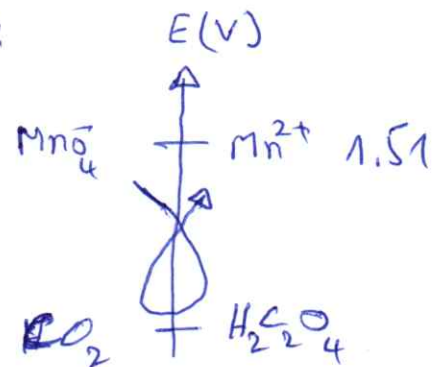 E(V)
MnO₄⁻ Mn²⁺ 1.51
CO₂ H₂C₂O₄